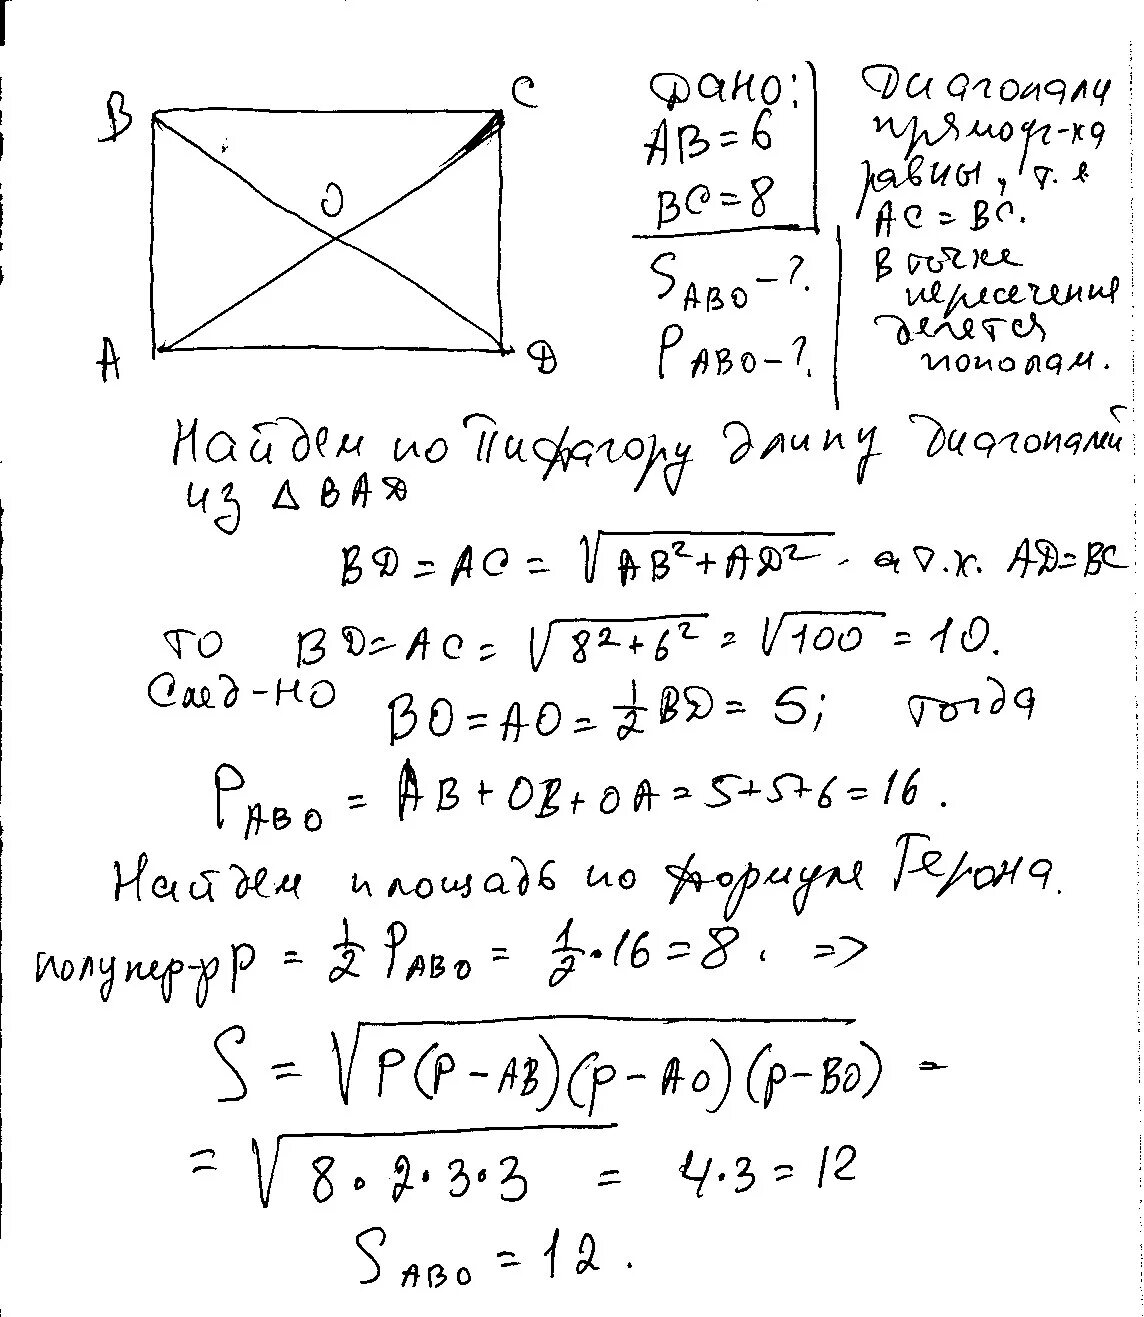 B
C
O
A
D
Дано:
AB = 6
BC = 8
S ABO - ?.
P ABO - ?.
Диагонали
прямоуг-ка
равны, т.е
AC = BC.
В точке
пересечения
делется
пополам.
Найдем по Пифагору длину диагоналей
из Δ BAD
BD = AC = √AB² + AD² - а т.к. AD = BC
то BD = AC = √8² + 6² = √100 = 10.
След-но BO = AO = 1/2 BD = 5; тогда
P ABO = AB + OB + OA = 5 + 5 + 6 = 16.
Найдем площадь по формуле Герона.
полупер-р P = 1/2 P ABO = 1/2 · 16 = 8. =>
S = √P(P - AB)(p - AO)(p - BO) =
= √8 · 2 · 3 · 3 = 4 · 3 = 12
S ABO = 12.